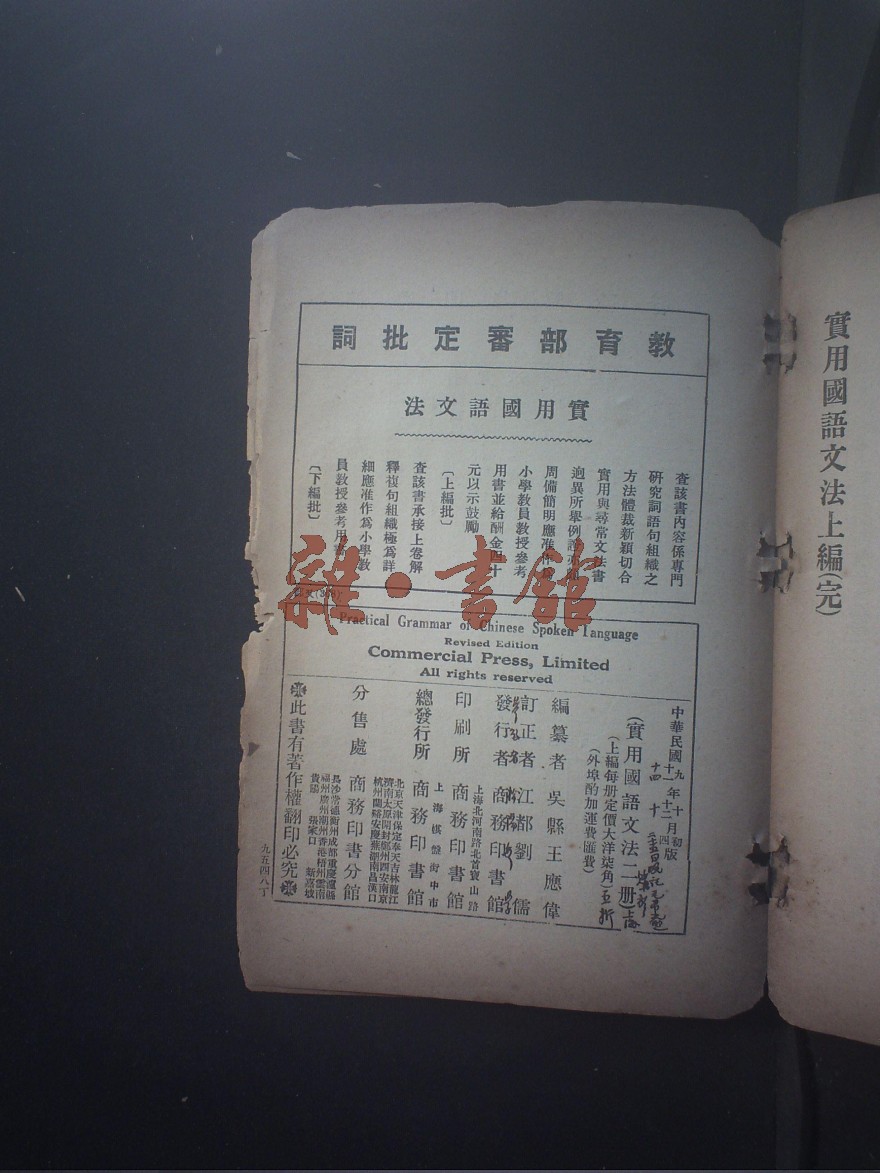 實用國語文法上編(完)
教育部審定批詞
實用國語文法
查該書內容係專門
研究詞語句組織之
方法體裁新穎切合
實用與尋常文法書
迥異所舉例證亦
周備簡明應准作
小學教員教授參考
用書並給酬金四十
元以示鼓勵
〔上編批〕
查該書承接上卷解
釋複句組織極為詳
細應准作為小學教
員教授參考用書
〔下編批〕
雜·書館
Practical Grammar of Chinese Spoken Language
Revised Edition
Commercial Press, Limited
All rights reserved
中華民國九年十月初版
十一年十二月四版
十四 十
(實用國語文法二册)
(上編每册定價大洋柒角) 五折
(外埠酌加運費匯費)
編纂者 吳縣王應偉
訂正者 江都劉儒
發行者 商務印書館
上海北河南路北首寶山路
印刷所 商務印書館
上海棋盤街中市
總發行所 商務印書館
北京天津保定奉天吉林龍江
濟南太原開封鄭州西安南京
杭州蘭谿安慶蕪湖南昌漢口
分售處 商務印書分館
長沙常德衡州成都重慶瀘縣
福州廣州潮州香港梧州雲南
貴陽 張家口 新嘉坡
※此書有著作權翻印必究※
九五四八丁